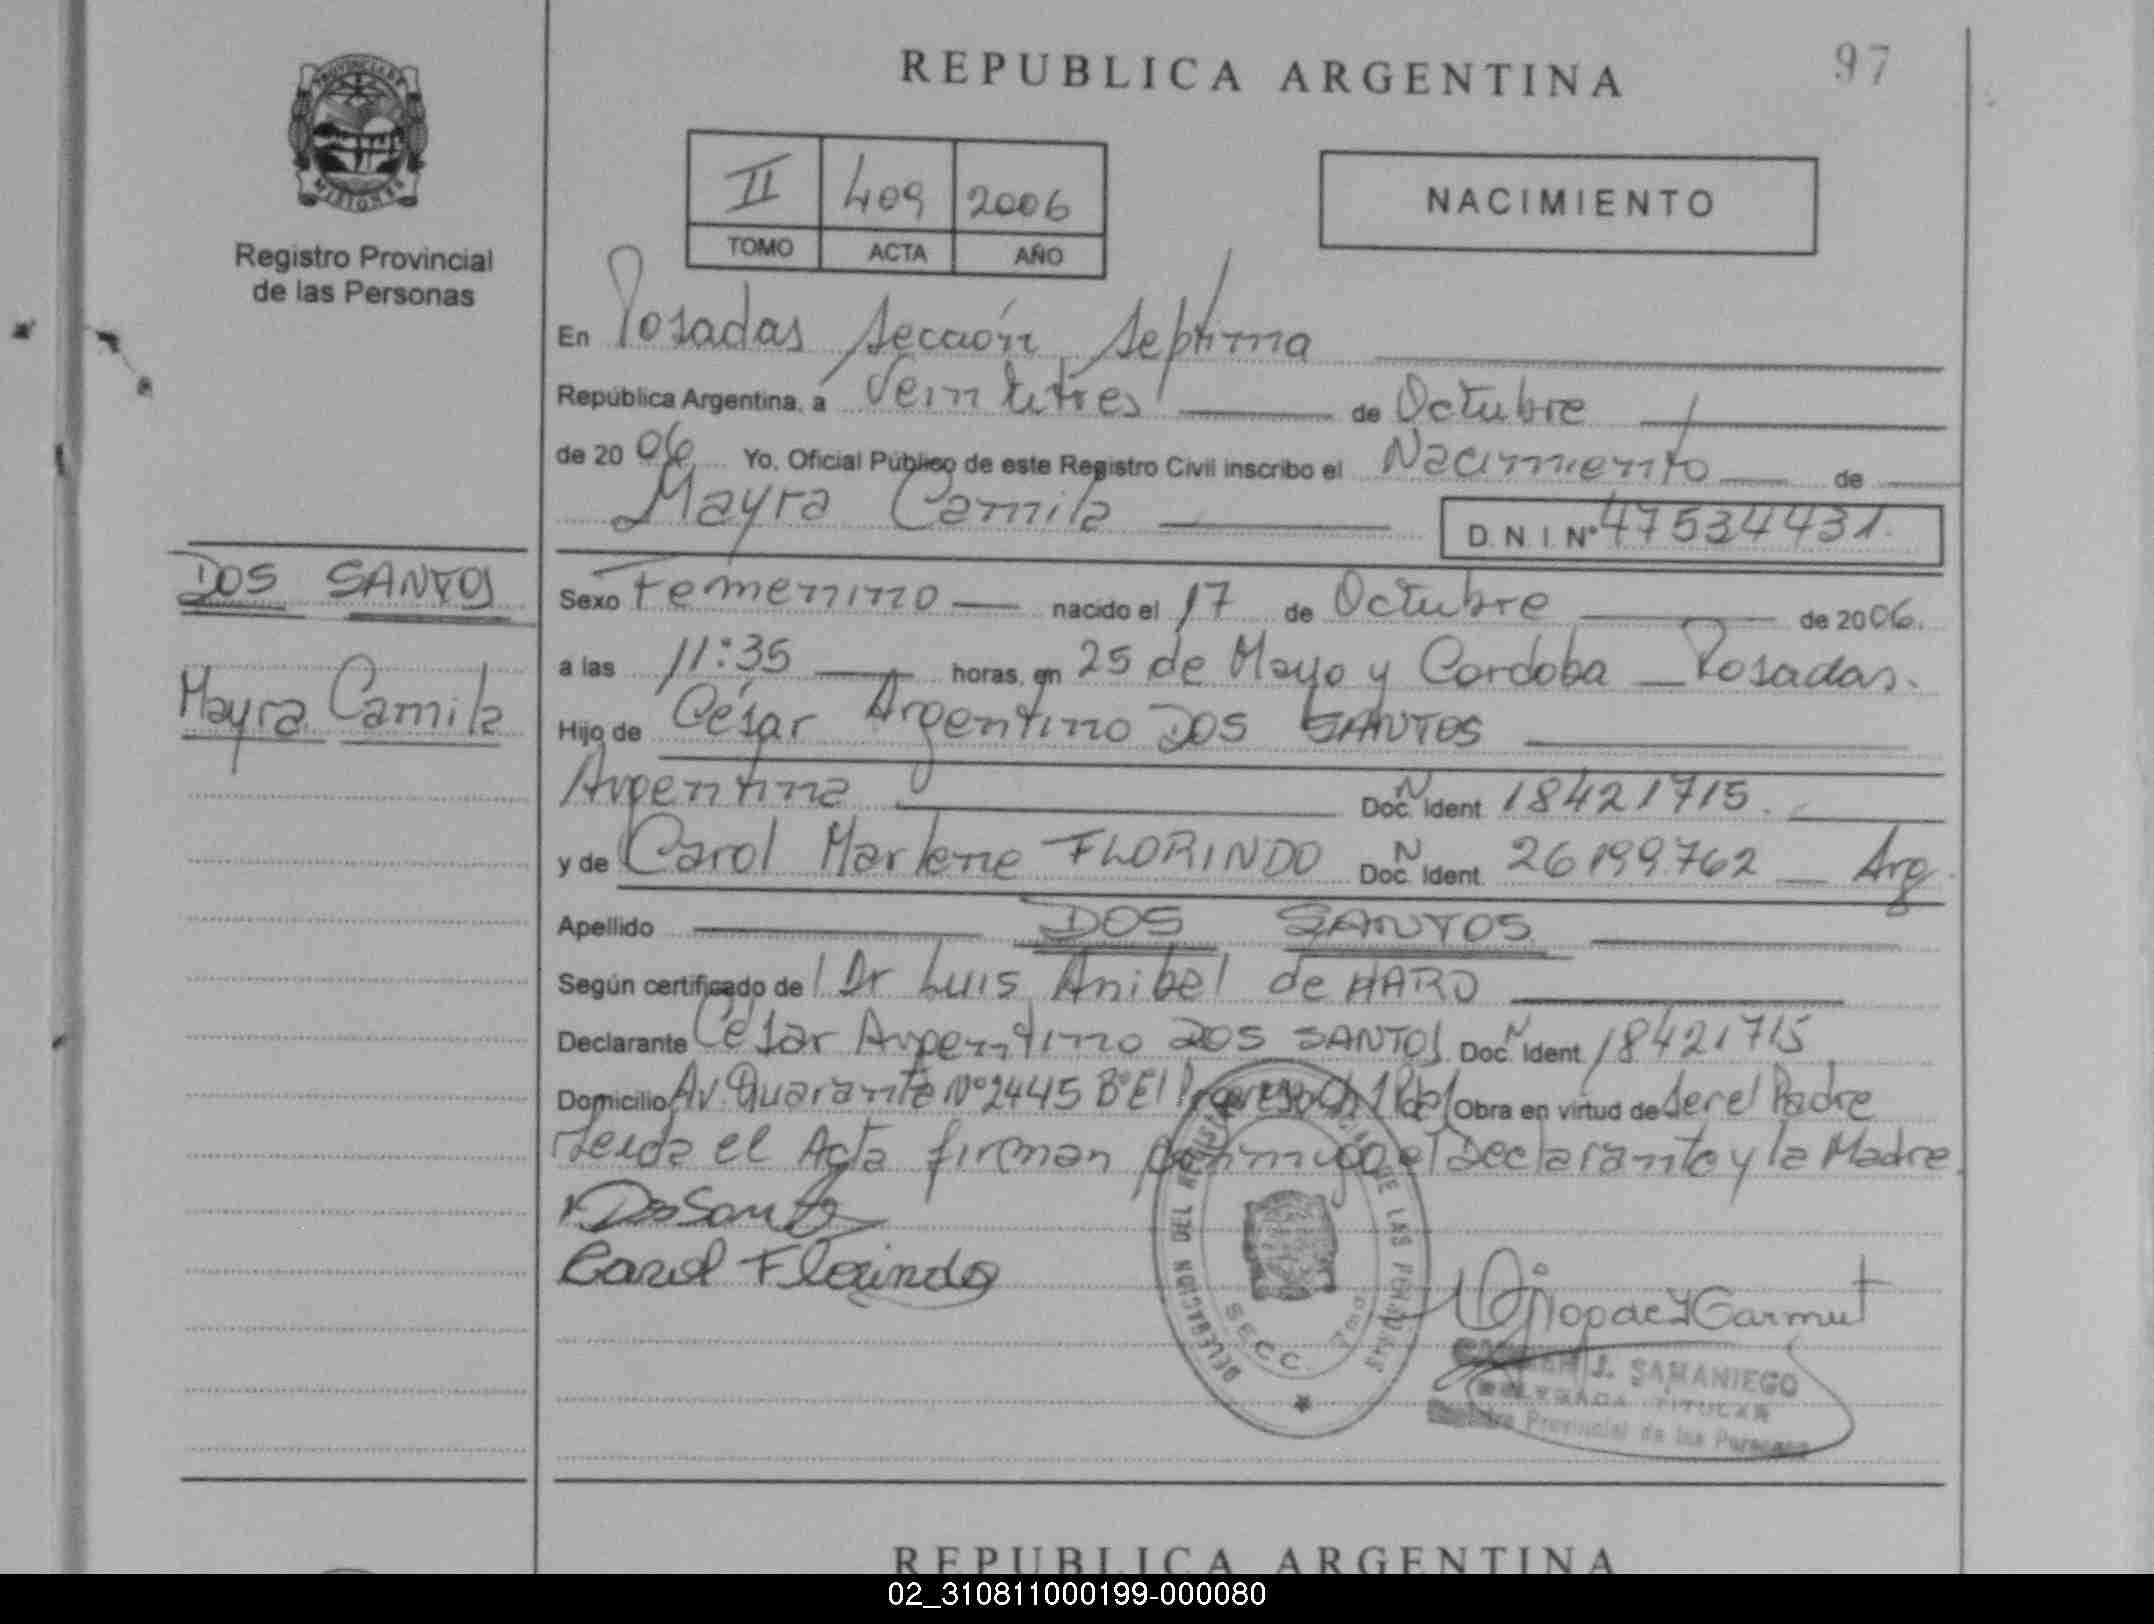 REPUBLICA ARGENTINA
97
PROVINCIA DE
MISIONES
Registro Provincial
de las Personas
II 409 2006
TOMO ACTA AÑO
NACIMIENTO
En Posadas Sección Septima
República Argentina, a Veintitres de Octubre
de 2006 Yo, Oficial Público de este Registro Civil inscribo el Nacimiento de
Mayra Camila D.N.I. Nº 47534431.
DOS SANTOS
Mayra Camila
Sexo Femenino nacido el 17 de Octubre de 2006.
a las 11:35 horas, en 25 de Mayo y Cordoba Posadas.
Hijo de César Argentino DOS SANTOS
Argentina Doc. N Ident 18421715.
y de Carol Marlene FLORINDO Doc. N Ident. 26199762 Arg.
Apellido DOS SANTOS
Según certificado de Dr Luis Anibal de HARO
Declarante César Argentino DOS SANTOS Doc. N Ident 18421715
Domicilio Av. Quaranta Nº 2445 Bº El Progreso Obra en virtud de ser el Padre
Leida el Acta firman el Declarante y la Madre.
Dos Santos
Carol Florindo
DELEGACION DEL DE LAS PERSONAS
SECC. 7ma
J. SAMANIEGO
DELEGADA TITULAR
Registro Provincial de las Personas
REPUBLICA ARGENTINA
02_310811000199-000080